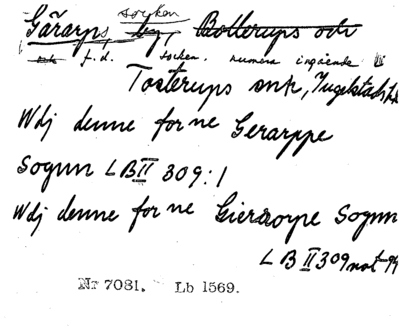 socken
Gärarps, by, Bollerups och
och f.d. socken. numera ingående i
Tosterups snk, Ingelstads hd
Wdj denne for ne Gerarppe
Sognn L B II 309:1
Wdj denne for ne Gieraorpe Sognn
L B II 309 not
Nr 7081. Lb 1569.